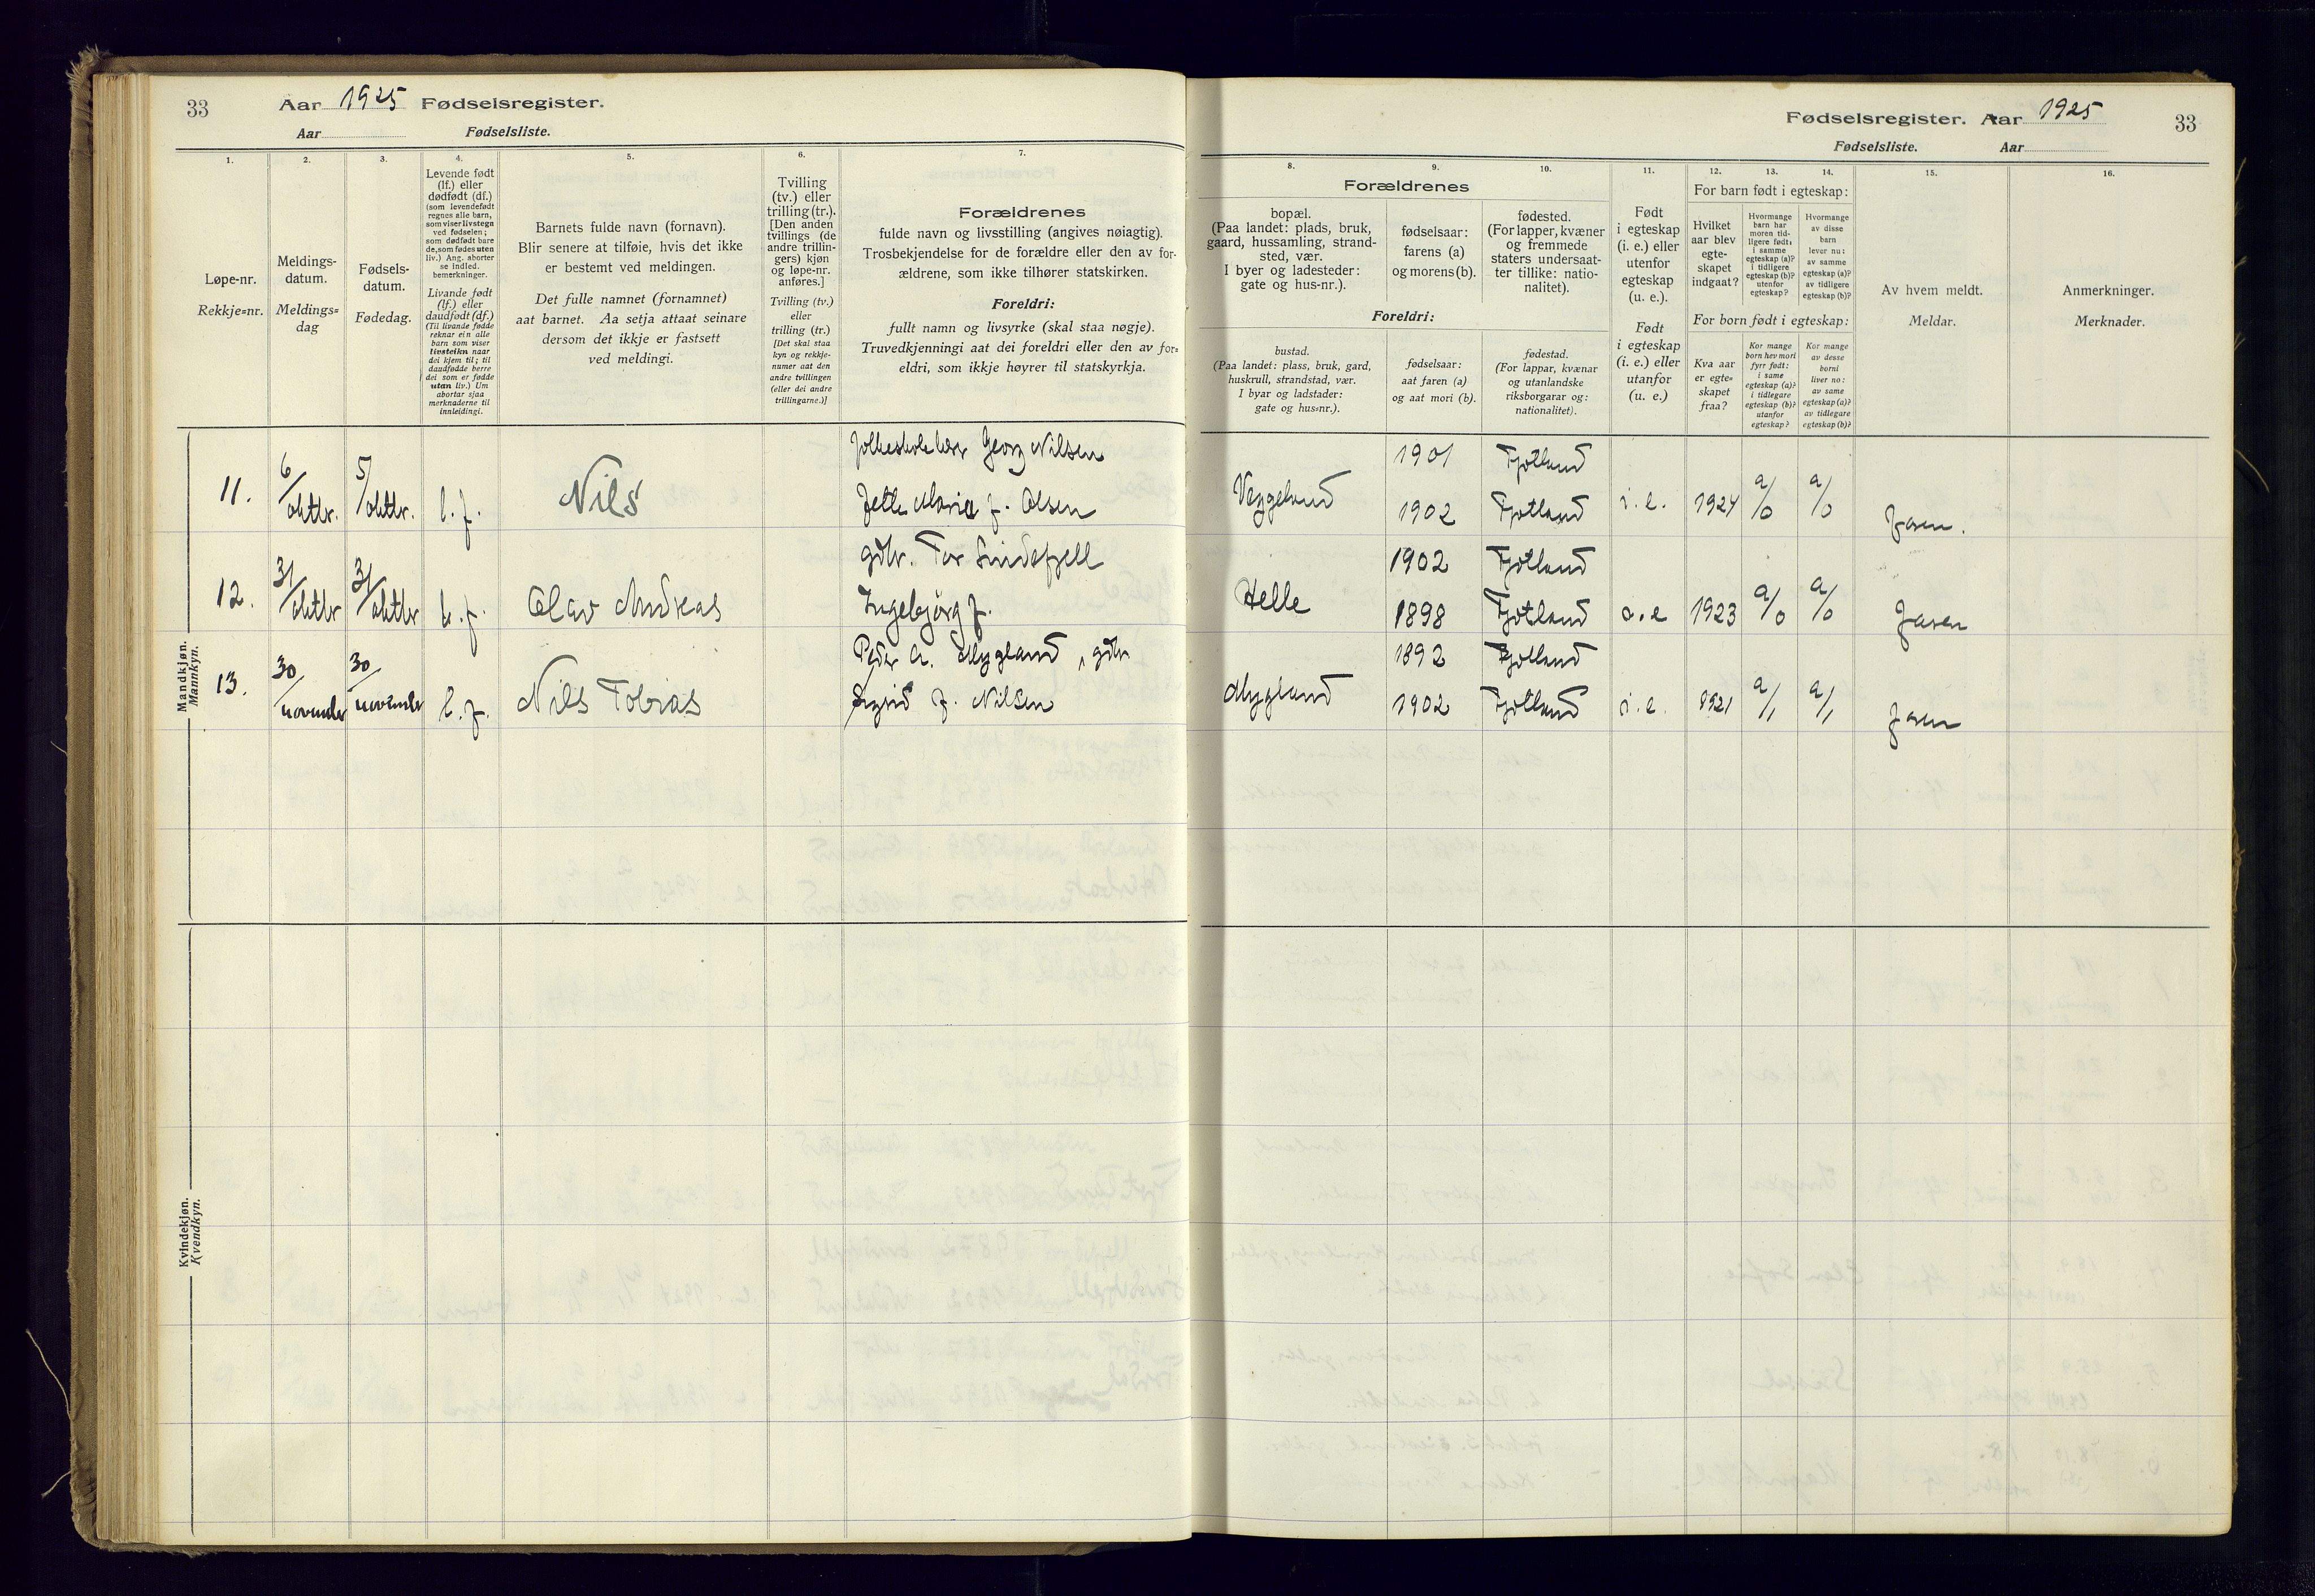 33 Aar 1925 Fødselsregister.
Aar Fødselsliste.
1.
Løpe-nr.
Rekkje=nr.
2.
Meldings-
datum.
Meldings=
dag
3.
Fødsels-
datum.
Fødedag.
4.
Levende født
(lf.) eller
dødfødt (df.)
(som levendefødt
regnes alle barn,
som viser livstegn
ved fødselen;
som dødfødt bare
de, som fødes uten
liv.) Ang. aborter
se indled.
bemerkninger.
Livande født
(lf.) eller
daudfødt (df.)
(Til livande fødde
reknar ein alle
barn som viser
livsteikn naar
dei kjem til; til
daudfødde berre
dei som er fødde
utan liv.) Um
abortar sjaa
merknaderne til
innleidingi.
5.
Barnets fulde navn (fornavn).
Blir senere at tilføie, hvis det ikke
er bestemt ved meldingen.
Det fulle namnet (fornamnet)
aat barnet. Aa setja attaat seinare
dersom det ikkje er fastsett
ved meldingi.
6.
Tvilling
(tv.) eller
trilling (tr.).
[Den anden
tvillings (de
andre trillin-
gers) kjøn
og løpe-nr.
anføres.]
Tvilling (tv.)
eller
trilling (tr.)
[Det skal staa
kyn og rekkje-
numer aat den
andre tvillingen
(eller dei andre
trillingarne.)]
7.
Forældrenes
fulde navn og livsstilling (angives nøiagtig).
Trosbekjendelse for de forældre eller den av for-
ældrene, som ikke tilhører statskirken.
Foreldri:
fullt namn og livsyrke (skal staa nøgje).
Truvedkjenningi aat dei foreldri eller den av for=
eldri, som ikkje høyrer til statskyrkja.
Mandkjøn.
Mannkyn.
11. 6/oktbr. 5/oktbr. l.f. Nils
Georg Nilsen
Marie f. Olsen
12. 31/oktbr 31/oktbr l.f. Olav Andreas
gdbr. Tor Lindefjell
Ingebjørg f.
13. 30/novemder 30/novemder l.f. Nils Tobias
Peder A. Mygland, gdbr
Sigrid f. Nilsen
Kvindekjøn.
Kvendkyn.
Fødselsregister. Aar 1925 33
Fødselsliste. Aar
8.
Forældrenes
bopæl.
(Paa landet: plads, bruk,
gaard, hussamling, strand-
sted, vær.
I byer og ladesteder:
gate og hus-nr.).
Foreldri:
bustad.
(Paa landet: plass, bruk, gard,
huskrull, strandstad, vær.
I byar og ladstader:
gate og hus=nr.).
9.
fødselsaar:
farens (a)
og morens (b).
fødselsaar:
aat faren (a)
og aat mori (b).
10.
fødested.
(For lapper, kvæner
og fremmede
staters undersaat-
ter tillike: natio-
nalitet).
fødestad.
(For lappar, kvænar
og utanlandske
riksborgarar og:
nationalitet).
11.
Født
i egteskap
(i. e.) eller
utenfor
egteskap
(u. e.).
Født
i egteskap
(i. e.) eller
utanfor
(u. e.)
12. 13. 14.
For barn født i egteskap:
Hvilket
aar blev
egte-
skapet
indgaat?
Hvormange
barn har
moren tid-
ligere født:
i samme
egteskap (a)?
i tidligere
egteskap (b)?
utenfor
egteskap?
Hvormange
av disse
barn
lever nu:
av samme
egteskap (a)?
av tidligere
egteskap (b)?
For born født i egteskap:
Kva aar
er egte=
skapet
fraa?
Kor mange
born hev mori
fyrr født:
i same
egteskap (a)?
i tidlegare
egteskap (b)?
utanfor
egteskap?
Kor mange
av desse
borni
liver no:
av same
egteskap (a)?
av tidlegare
egteskap (b)?
15.
Av hvem meldt.
Meldar.
16.
Anmerkninger.
Merknader.
1901 Fjotland
Veggeland 1902 Fjotland i. e. 1924 a/0 a/0 Faren.
1902 Fjotland
Helle 1898 Fjotland i. e 1923 a/0 a/0 Faren
1892 Fjotland
Mygland 1902 Fjotland i. e. 1921 a/1 a/1 Faren